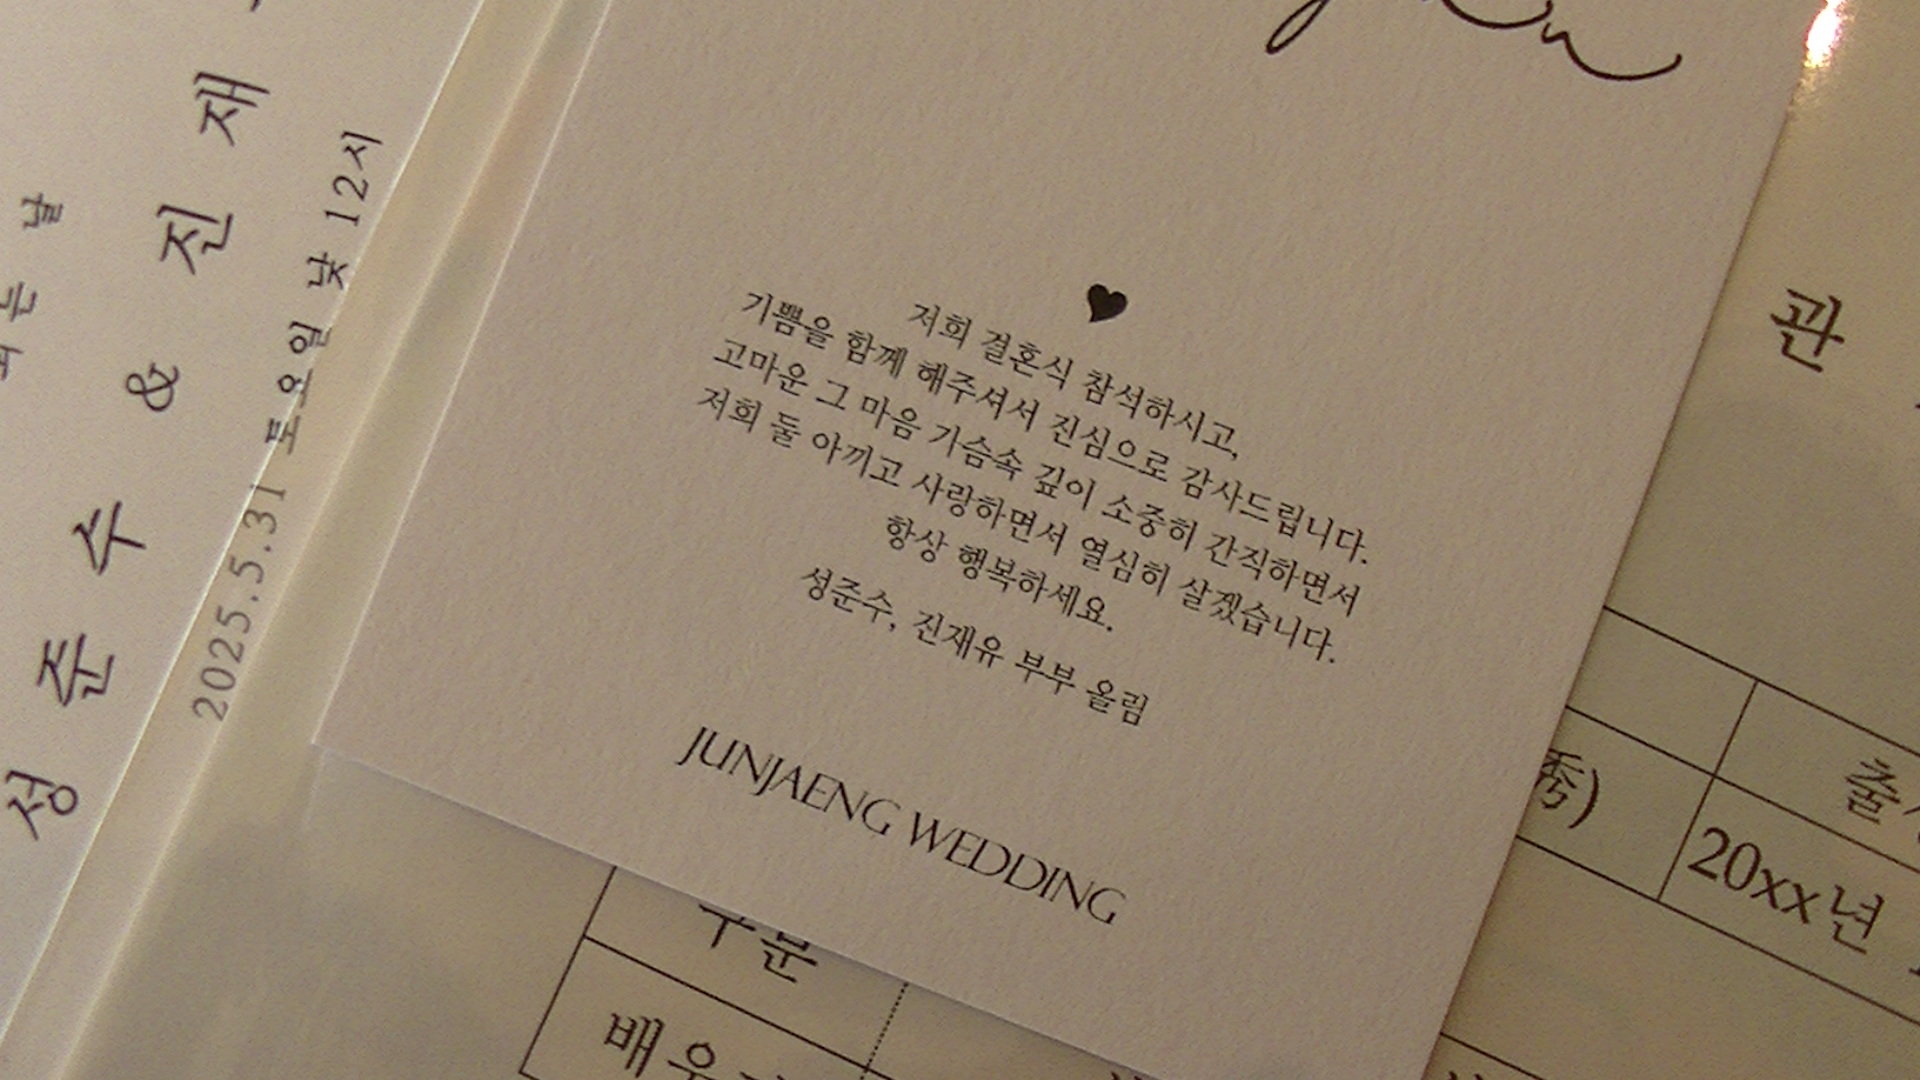 되는 날
성준수 & 진재
2025.5.31 토요일 낮 12시
♥
저희 결혼식 참석하시고,
기쁨을 함께 해주셔서 진심으로 감사드립니다.
고마운 그 마음 가슴속 깊이 소중히 간직하면서
저희 둘 아끼고 사랑하면서 열심히 살겠습니다.
항상 행복하세요.
성준수, 진재유 부부 올림
JUNJAENG WEDDING
관
秀)
출생
20xx년
구분
배우